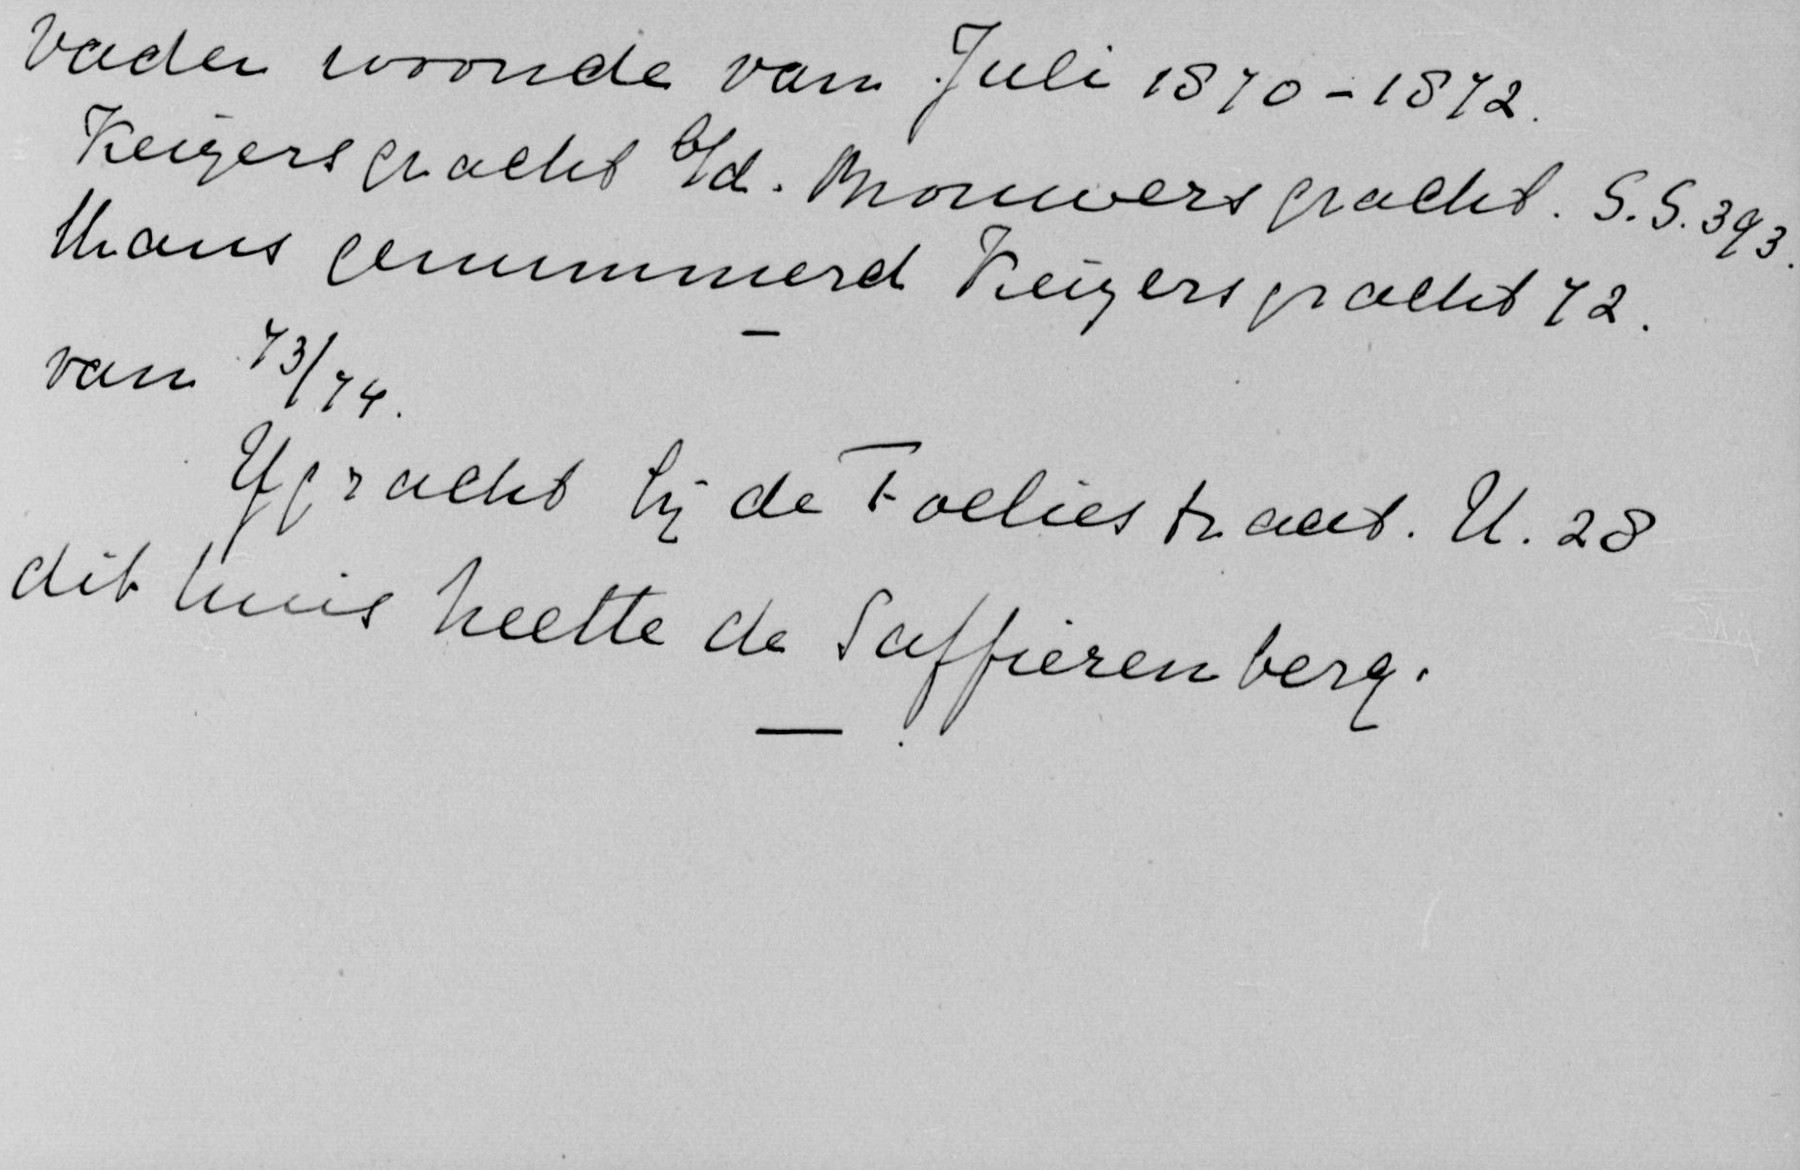 Vader woonde van Juli 1870-1872.
Keizersgracht b/d. Brouwersgracht. S.S. 393.
thans genummerd Keizersgracht 72.
van 73/74.
Ygracht bij de Foeliestraat. U. 28
dit huis heette de Saffierenberg.